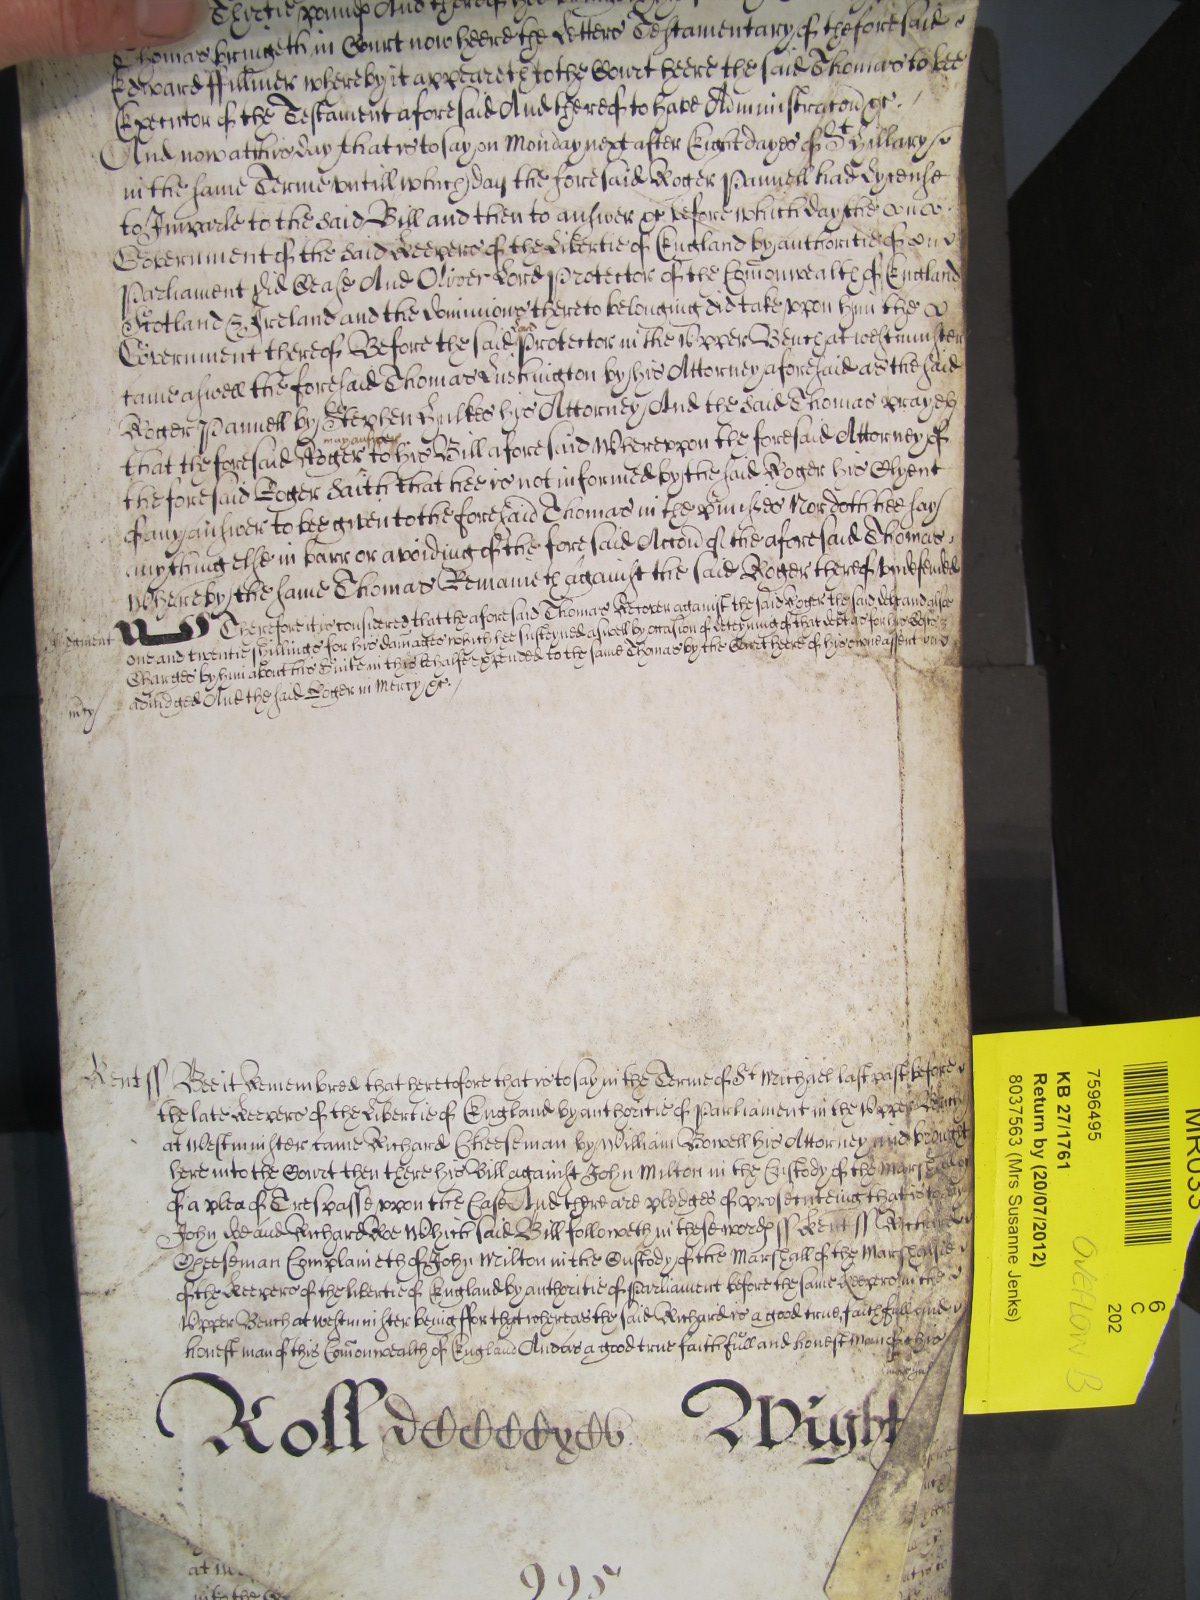 Thirtie pounds And thereof hee bringeth
Thomas bringeth in Court now heere the Letters Testamentary of the foresaid
Edward ffullmer whereby it appeareth to the Court heere the said Thomas to bee
Executor of the Testament aforesaid And thereof to have Administracon &c.
And now at this day that is to say on Monday next after Eight dayes of St Hillary
in the same Terme untill which day the foresaid Roger Pannell had Lycense
to Imparle to the said Bill and then to answer &c before which day the
Government of the said Keepers of the Libertie of England by authoritie of
Parliament did Cease And Oliver Lord Protector of the Comonwealth of England
Scotland & Ireland and the Dominions thereto belonging did take upon him the
Government thereof Before the said Lord Protector in the Upper Bench at westminster
came aswell the foresaid Thomas Lushington by his Attorney aforesaid as the said
Roger Pannell by Stephen his Attorney And the said Thomas prayeth
that the foresaid Roger may answer to his Bill aforesaid Whereupon the foresaid Attorney of
the foresaid Roger saith that hee is not informed by the said Roger his Clyent
of any answer to bee given to the foresaid Thomas in the premisses Nor doth hee say
any thing else in barr or avoiding of the foresaid Accon of the aforesaid Thomas
whereby the same Thomas Remaineth against the said Roger thereof undefended
Judgment Therefore it is considered that the aforesaid Thomas Recover against the said Roger the said debt and alsoe
one and twentie shillings for his damages which hee susteyned aswell by occasion of deteyning of that debt as for his Costs &
Charges by him about his Suite in this behalfe expended to the same Thomas by the Court heere of his owne assent
adiudged And the said Roger in Mercy &c.
mcy
Kent ss Bee it Remembred that heretofore that is to say in the Terme of St Michael last past before
the late Keepers of the Libertie of England by authoritie of Parliament in the Upper Bench
at Westminster came Richard Cheeseman by William Rowell his Attorney and brought
here into the Court then there his Bill against John Milton in the Custody of the Marshall
of a plea of Trespasse uppon the Case And there are pledges of prosecuteing that is to say
John Doe and Richard Roe Which said Bill followeth in these words ss Kent ss Richard
Cheeseman Complaineth of John Milton in the Custody of the Marshall of the Marshalsie
of the Keepers of the libertie of England by authoritie of Parliament before the same Keepers in the
Upper Bench at westminster being ffor that whereas the said Richard is a good true, faithfull and
honest man of this Comonwealth of England And as a good true faithfull and honest man of this
Roll dCCCCxCv Wight
995
MR033
7596495
KB 27/1761
Return by (20/07/2012)
8037563 (Mrs Susanne Jenks)
6
C
202
OVERFLOW B